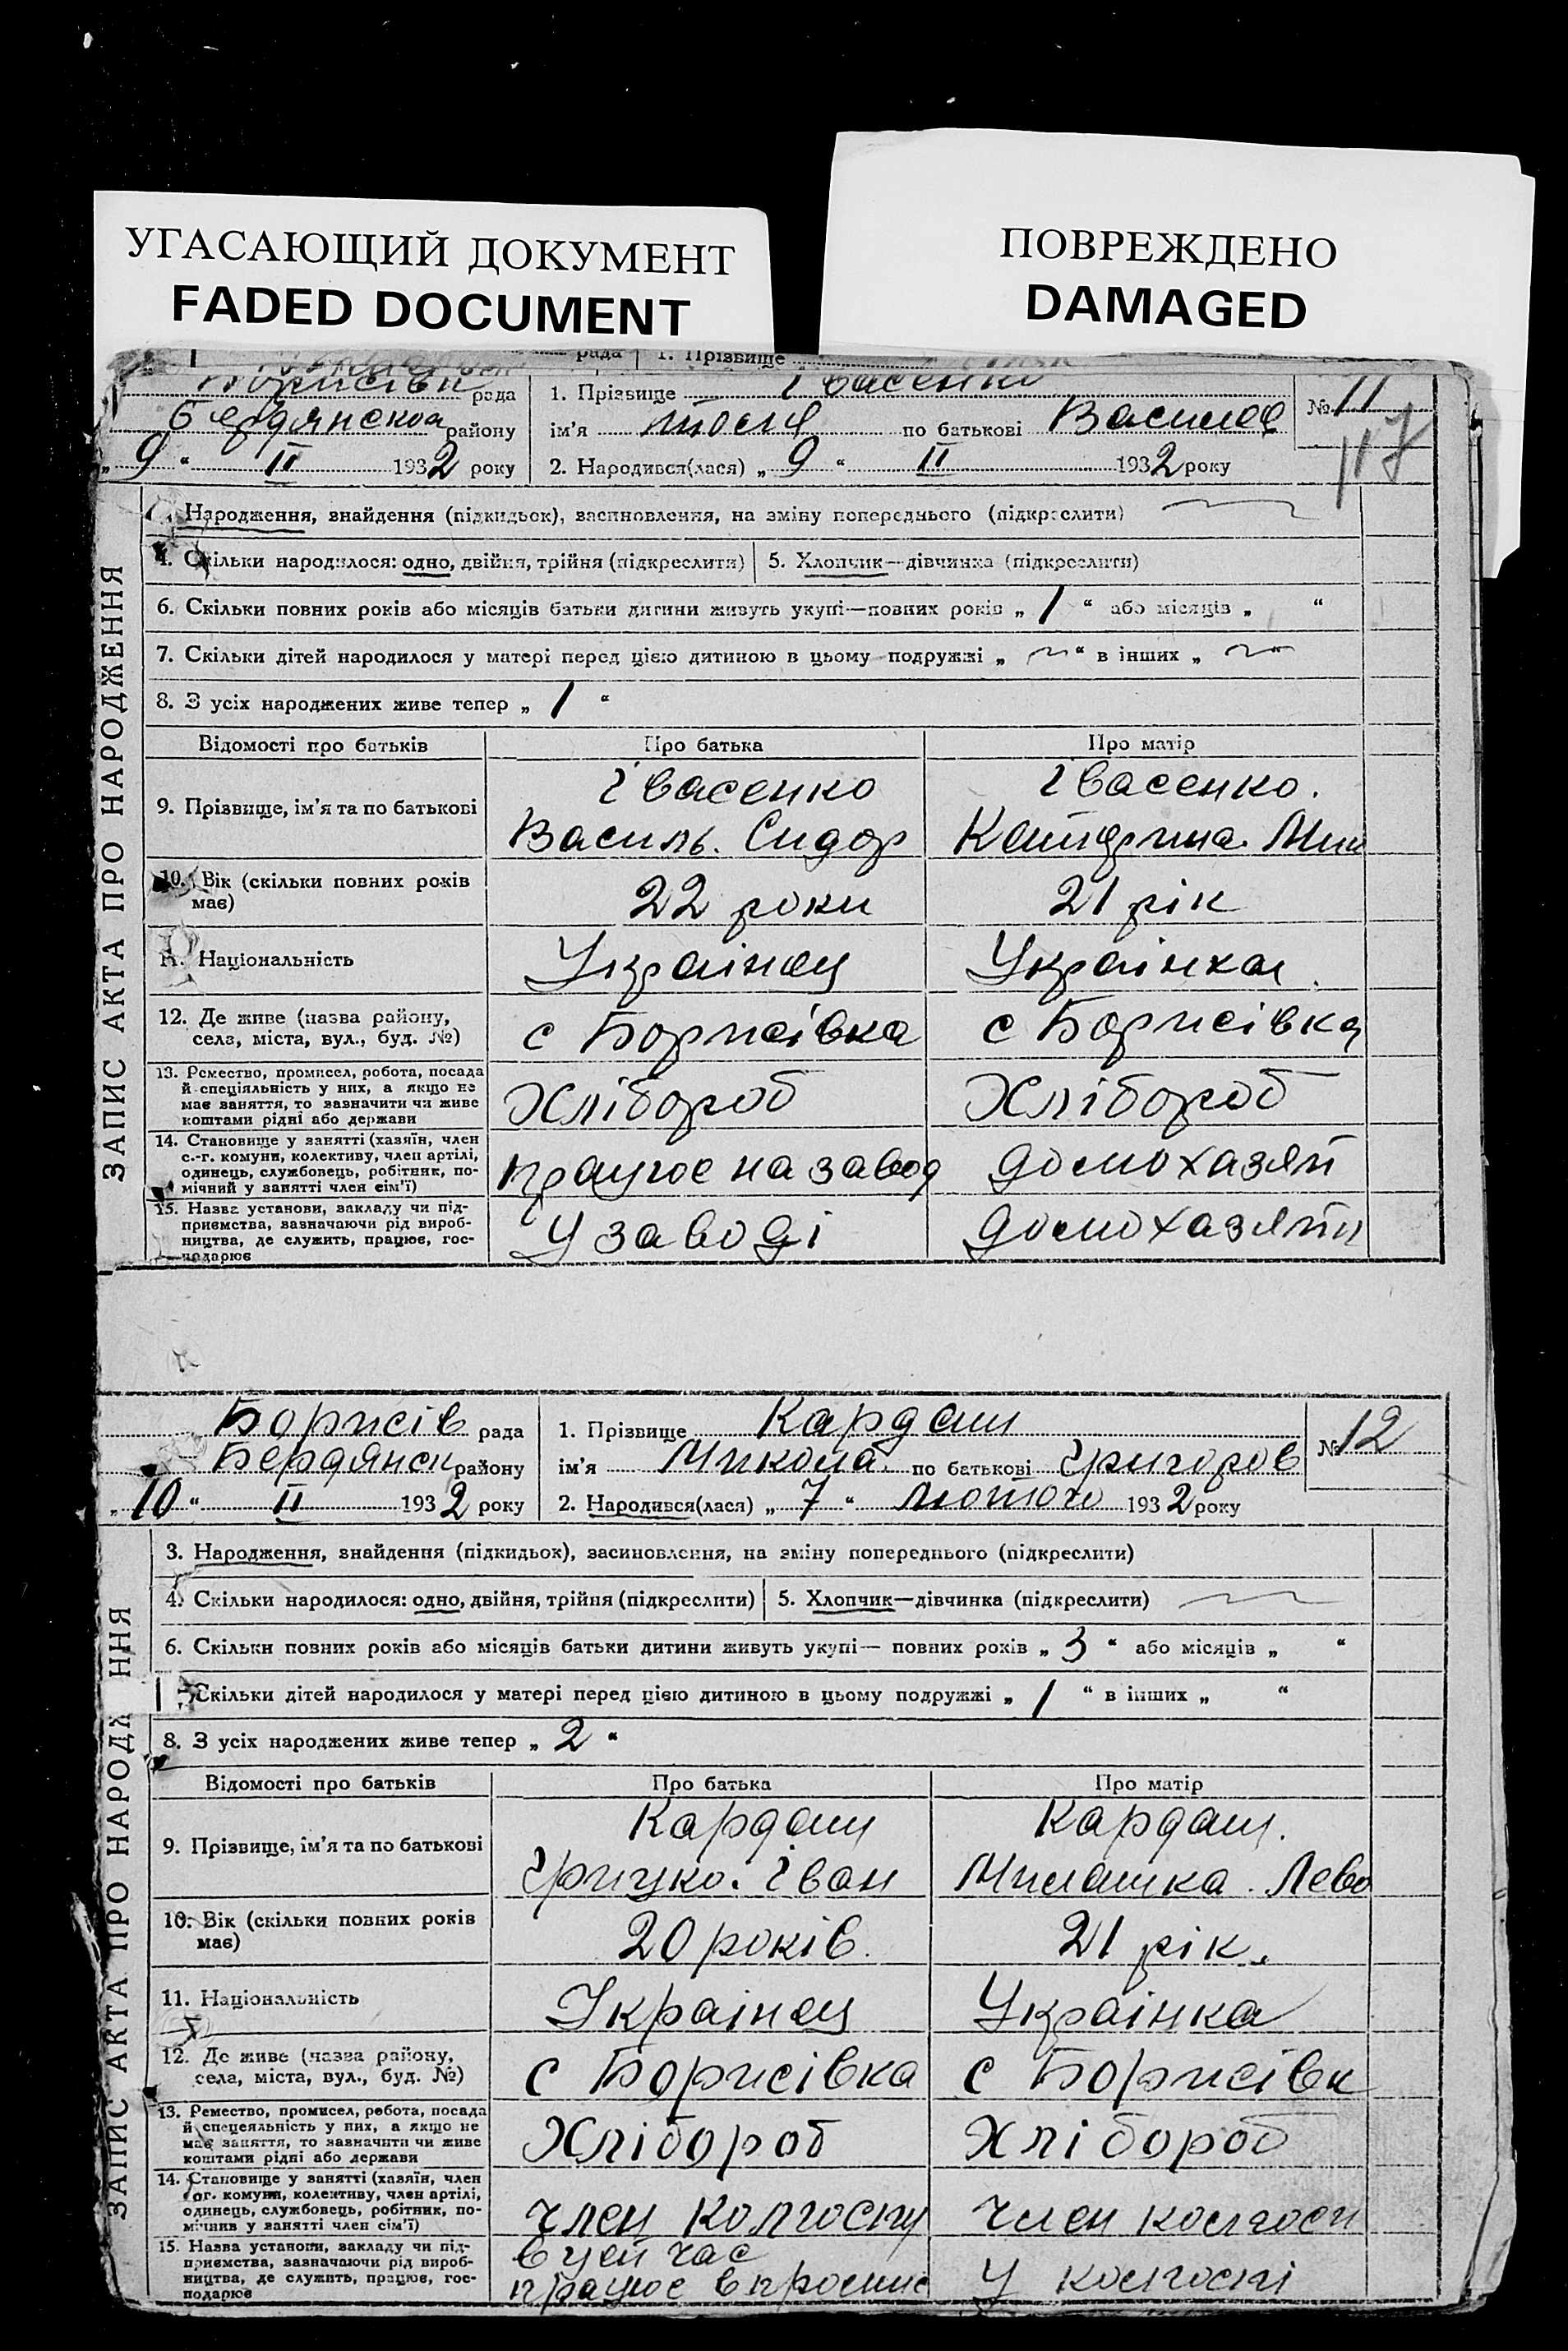 УГАСАЮЩИЙ ДОКУМЕНТ
FADED DOCUMENT
ПОВРЕЖДЕНО
DAMAGED
рада 1. Прізвище
Борисівн рада 1. Прізвище Івасенко № 11
Бердянской району ім'я по батькові Василев
117
„ 9 “ II 1932 року 2. Народився(лася) „ 9 “ II 1932 року
ЗАПИС АКТА ПРО НАРОДЖЕННЯ
Народження, знайдення (підкидьок), засиновлення, на зміну попереднього (підкреслити)
4. Скільки народилося: одно, двійня, трійня (підкреслити) 5. Хлопчик—дівчинка (підкреслити)
6. Скільки повних років або місяців батьки дитини живуть укупі—повних років „ 1 “ або місяців „ “
7. Скільки дітей народилося у матері перед цією дитиною в цьому подружжі „ ~ “ в інших „ ~ “
8. З усіх народжених живе тепер „ 1 “
Відомості про батьків Про батька Про матір
9. Прізвище, ім'я та по батькові
Івасенко Івасенко.
Василь. Сидор Катерина.
10. Вік (скільки повних років
має) 22 роки 21 рік
11. Національність Украінец Украінка
12. Де живе (назва району,
села, міста, вул., буд. №) с Борисівка с Борисівка
13. Ремество, промисел, робота, посада
й спеціяльність у них, а якщо не
має заняття, то зазначити чи живе
коштами рідні або держави
Хлібороб Хлібороб
14. Становище у занятті (хазяїн, член
с.-г. комуни, колективу, член артілі,
одинець, службовець, робітник, по-
мічний у занятті член сім'ї)
працює на завод домохазяй
15. Назва установи, закладу чи під-
приємства, зазначаючи рід вироб-
ництва, де служить, працює, гос-
подарює
У заводі
Борисів рада 1. Прізвище Кардаш № 12
Бердянськ району ім'я Микола по батькові Григоров
„ 10 “ II 1932 року 2. Народився(лася) „ 7 “ лютого 1932 року
ЗАПИС АКТА ПРО НАРОДЖ ННЯ
3. Народження, знайдення (підкидьок), засиновлення, на зміну попереднього (підкреслити)
4. Скільки народилося: одно, двійня, трійня (підкреслити) 5. Хлопчик—дівчинка (підкреслити)
6. Скільки повних років або місяців батьки дитини живуть укупі— повних років „ 3 “ або місяців „ “
Скільки дітей народилося у матері перед цією дитиною в цьому подружжі „ 1 “ в інших „ “
8. З усіх народжених живе тепер „ 2 “
Відомості про батьків Про батька Про матір
9. Прізвище, ім'я та по батькові
Кардаш Кардаш.
Грицко. Іван Милашка. Лево
10. Вік (скільки повних років
має) 20 років. 21 рік.
11. Національність Украінец Украінка
12. Де живе (назва району,
села, міста, вул., буд. №) с Борисівка с Борисівк
13. Ремество, промисел, робота, посада
й спецеяльність у них, а якщо не
має заняття, то зазначити чи живе
коштами рідні або держави
Хлібороб Хлібороб
14. Становище у занятті (хазяїн, член
с.-г. комуни, колективу, член артілі,
одинець, службовець, робітник, по-
мічнив у занятті член сім'ї)
член колгоспу член колгосп
15. Назва установи, закладу чи під-
приємства, зазначаючи рід вироб-
ництва, де служить, працює, гос-
подарює
в цей час
працює в промис у колгоспі